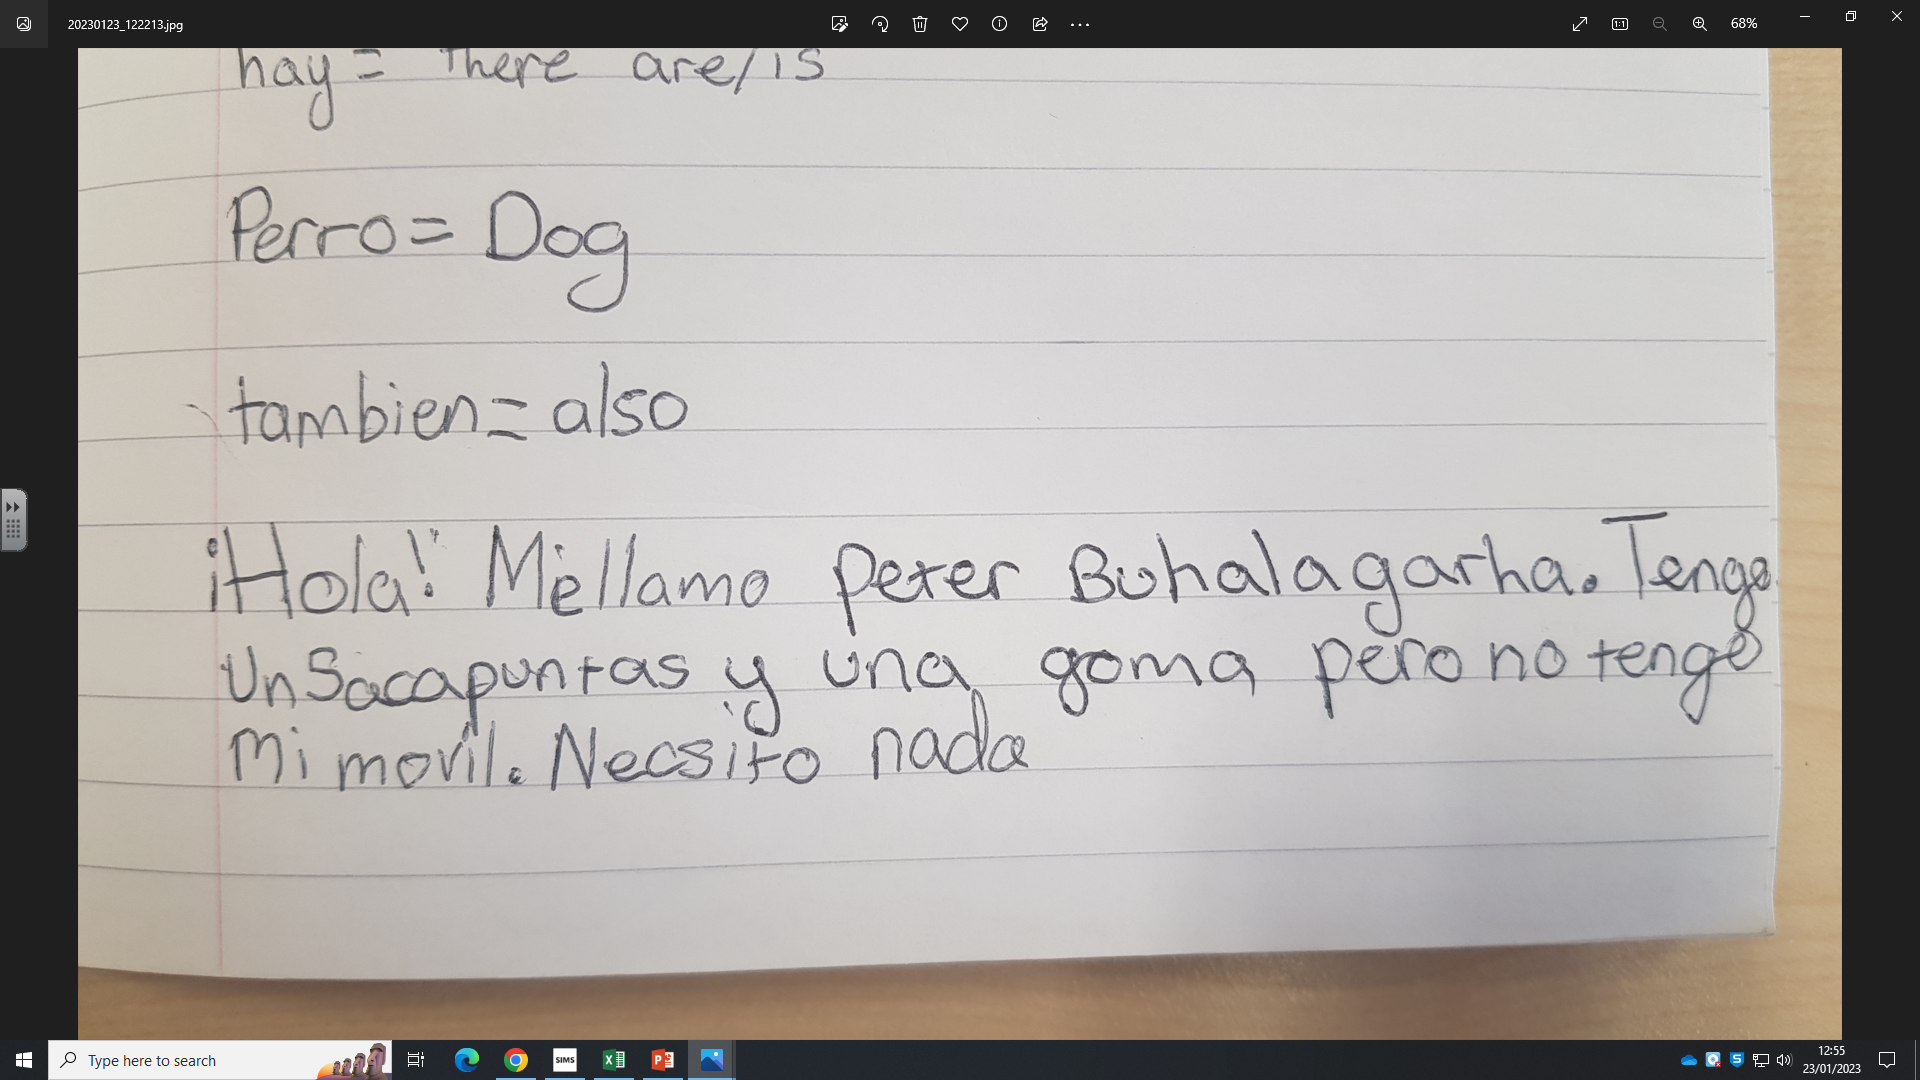 20230123_122213.jpg
68%
hay = there are/is
Perro = Dog
tambien = also
¡Hola! Mellamo Peter Buhalagarha. Tengo
Un Sacapuntas y una goma pero no tengo
Mi movil. Necsito nada
Type here to search
SIMS
12:55
23/01/2023